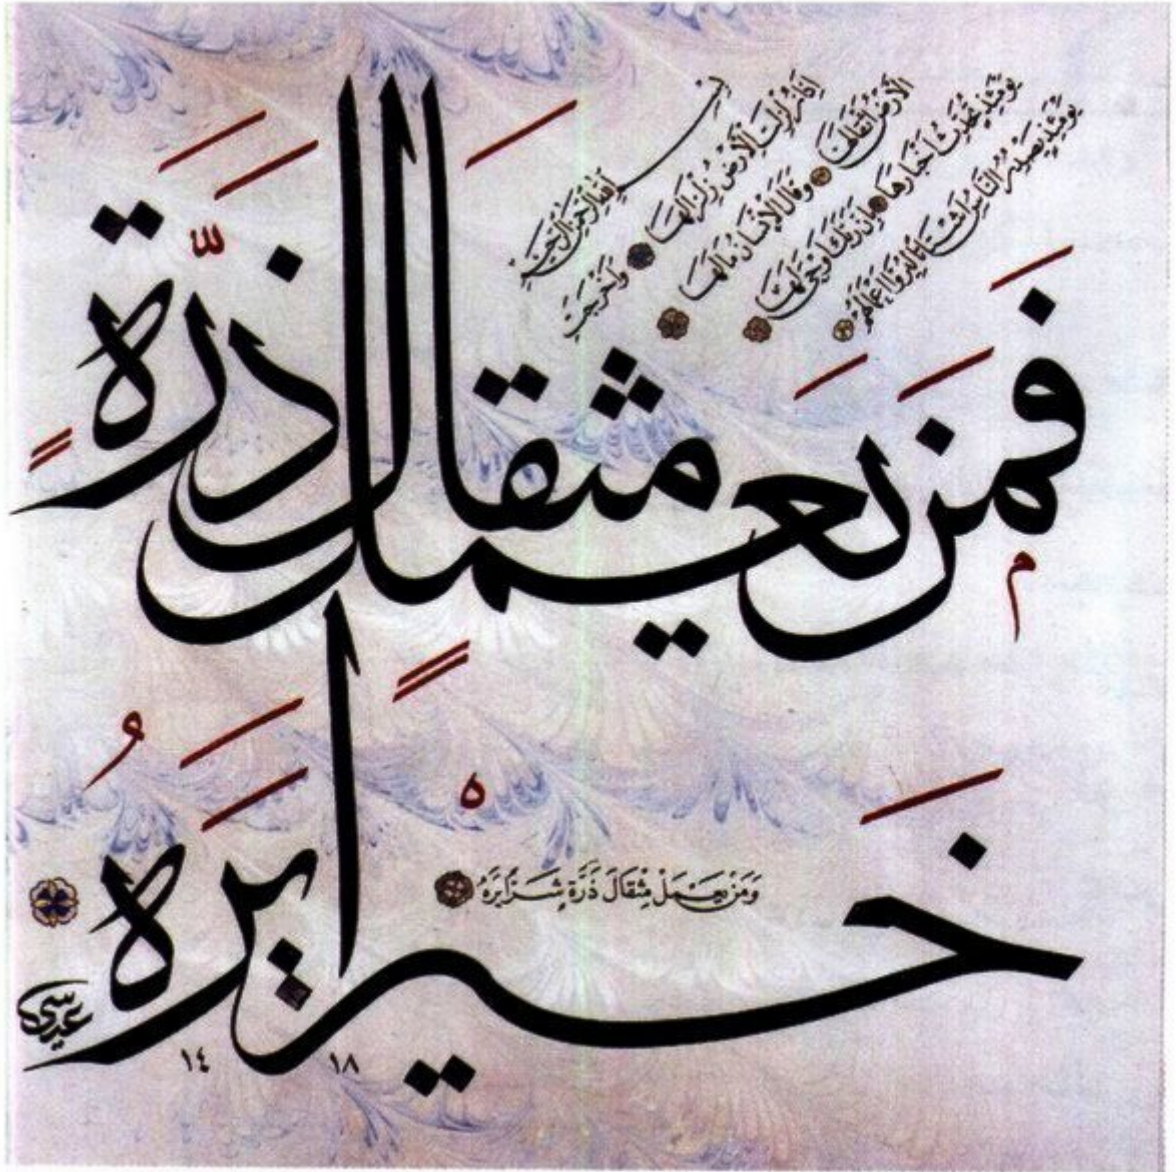 بسم الله الرحمن الرحيم
إِذَا زُلْزِلَتِ الْأَرْضُ زِلْزَالَهَا وَأَخْرَجَتِ
الْأَرْضُ أَثْقَالَهَا وَقَالَ الْإِنْسَانُ مَا لَهَا
يَوْمَئِذٍ تُحَدِّثُ أَخْبَارَهَا بِأَنَّ رَبَّكَ أَوْحَى لَهَا
يَوْمَئِذٍ يَصْدُرُ النَّاسُ أَشْتَاتًا لِيُرَوْا أَعْمَالَهُمْ
فَمَن يَعْمَلْ مِثْقَالَ ذَرَّةٍ
خَيْرًا يَرَهُ
وَمَنْ يَعْمَلْ مِثْقَالَ ذَرَّةٍ شَرًّا يَرَهُ
١٤١٨